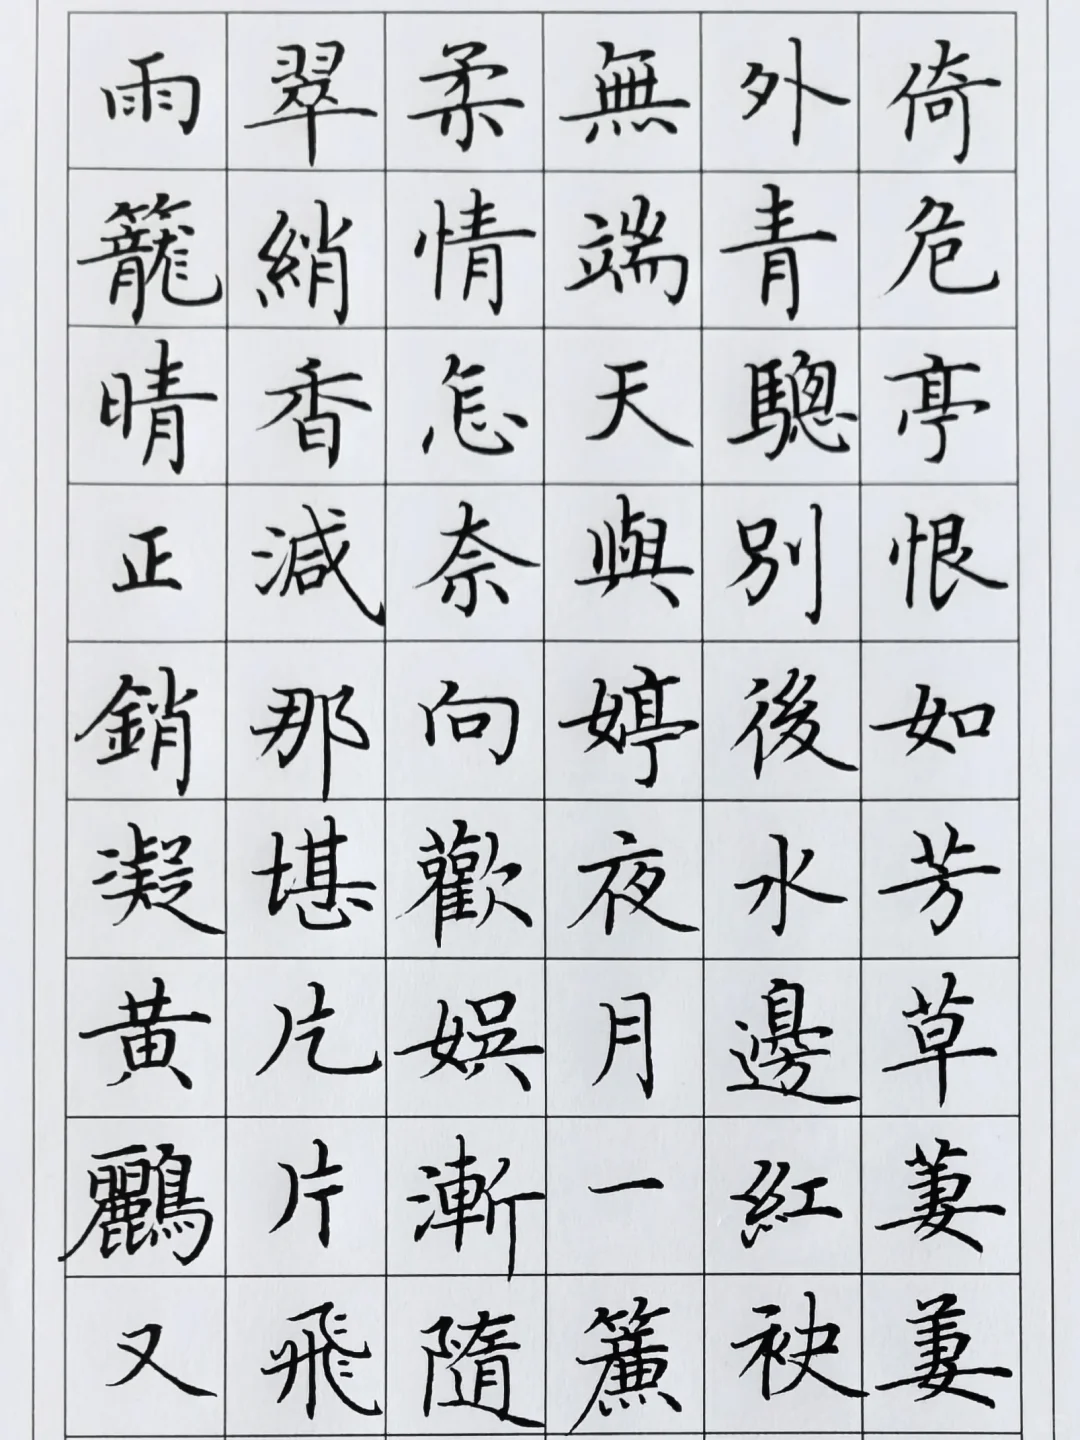 倚危亭恨如芳草萋萋
外青驄別後水邊紅袂
無端天與婷夜月一簾
柔情怎奈向歡娛漸隨
翠綃香減那堪片片飛
雨籠晴正銷凝黃鸝又